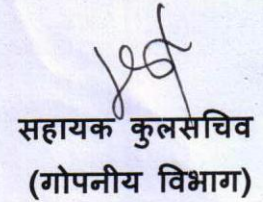 सहायक कुलसचिव
(गोपनीय विभाग)